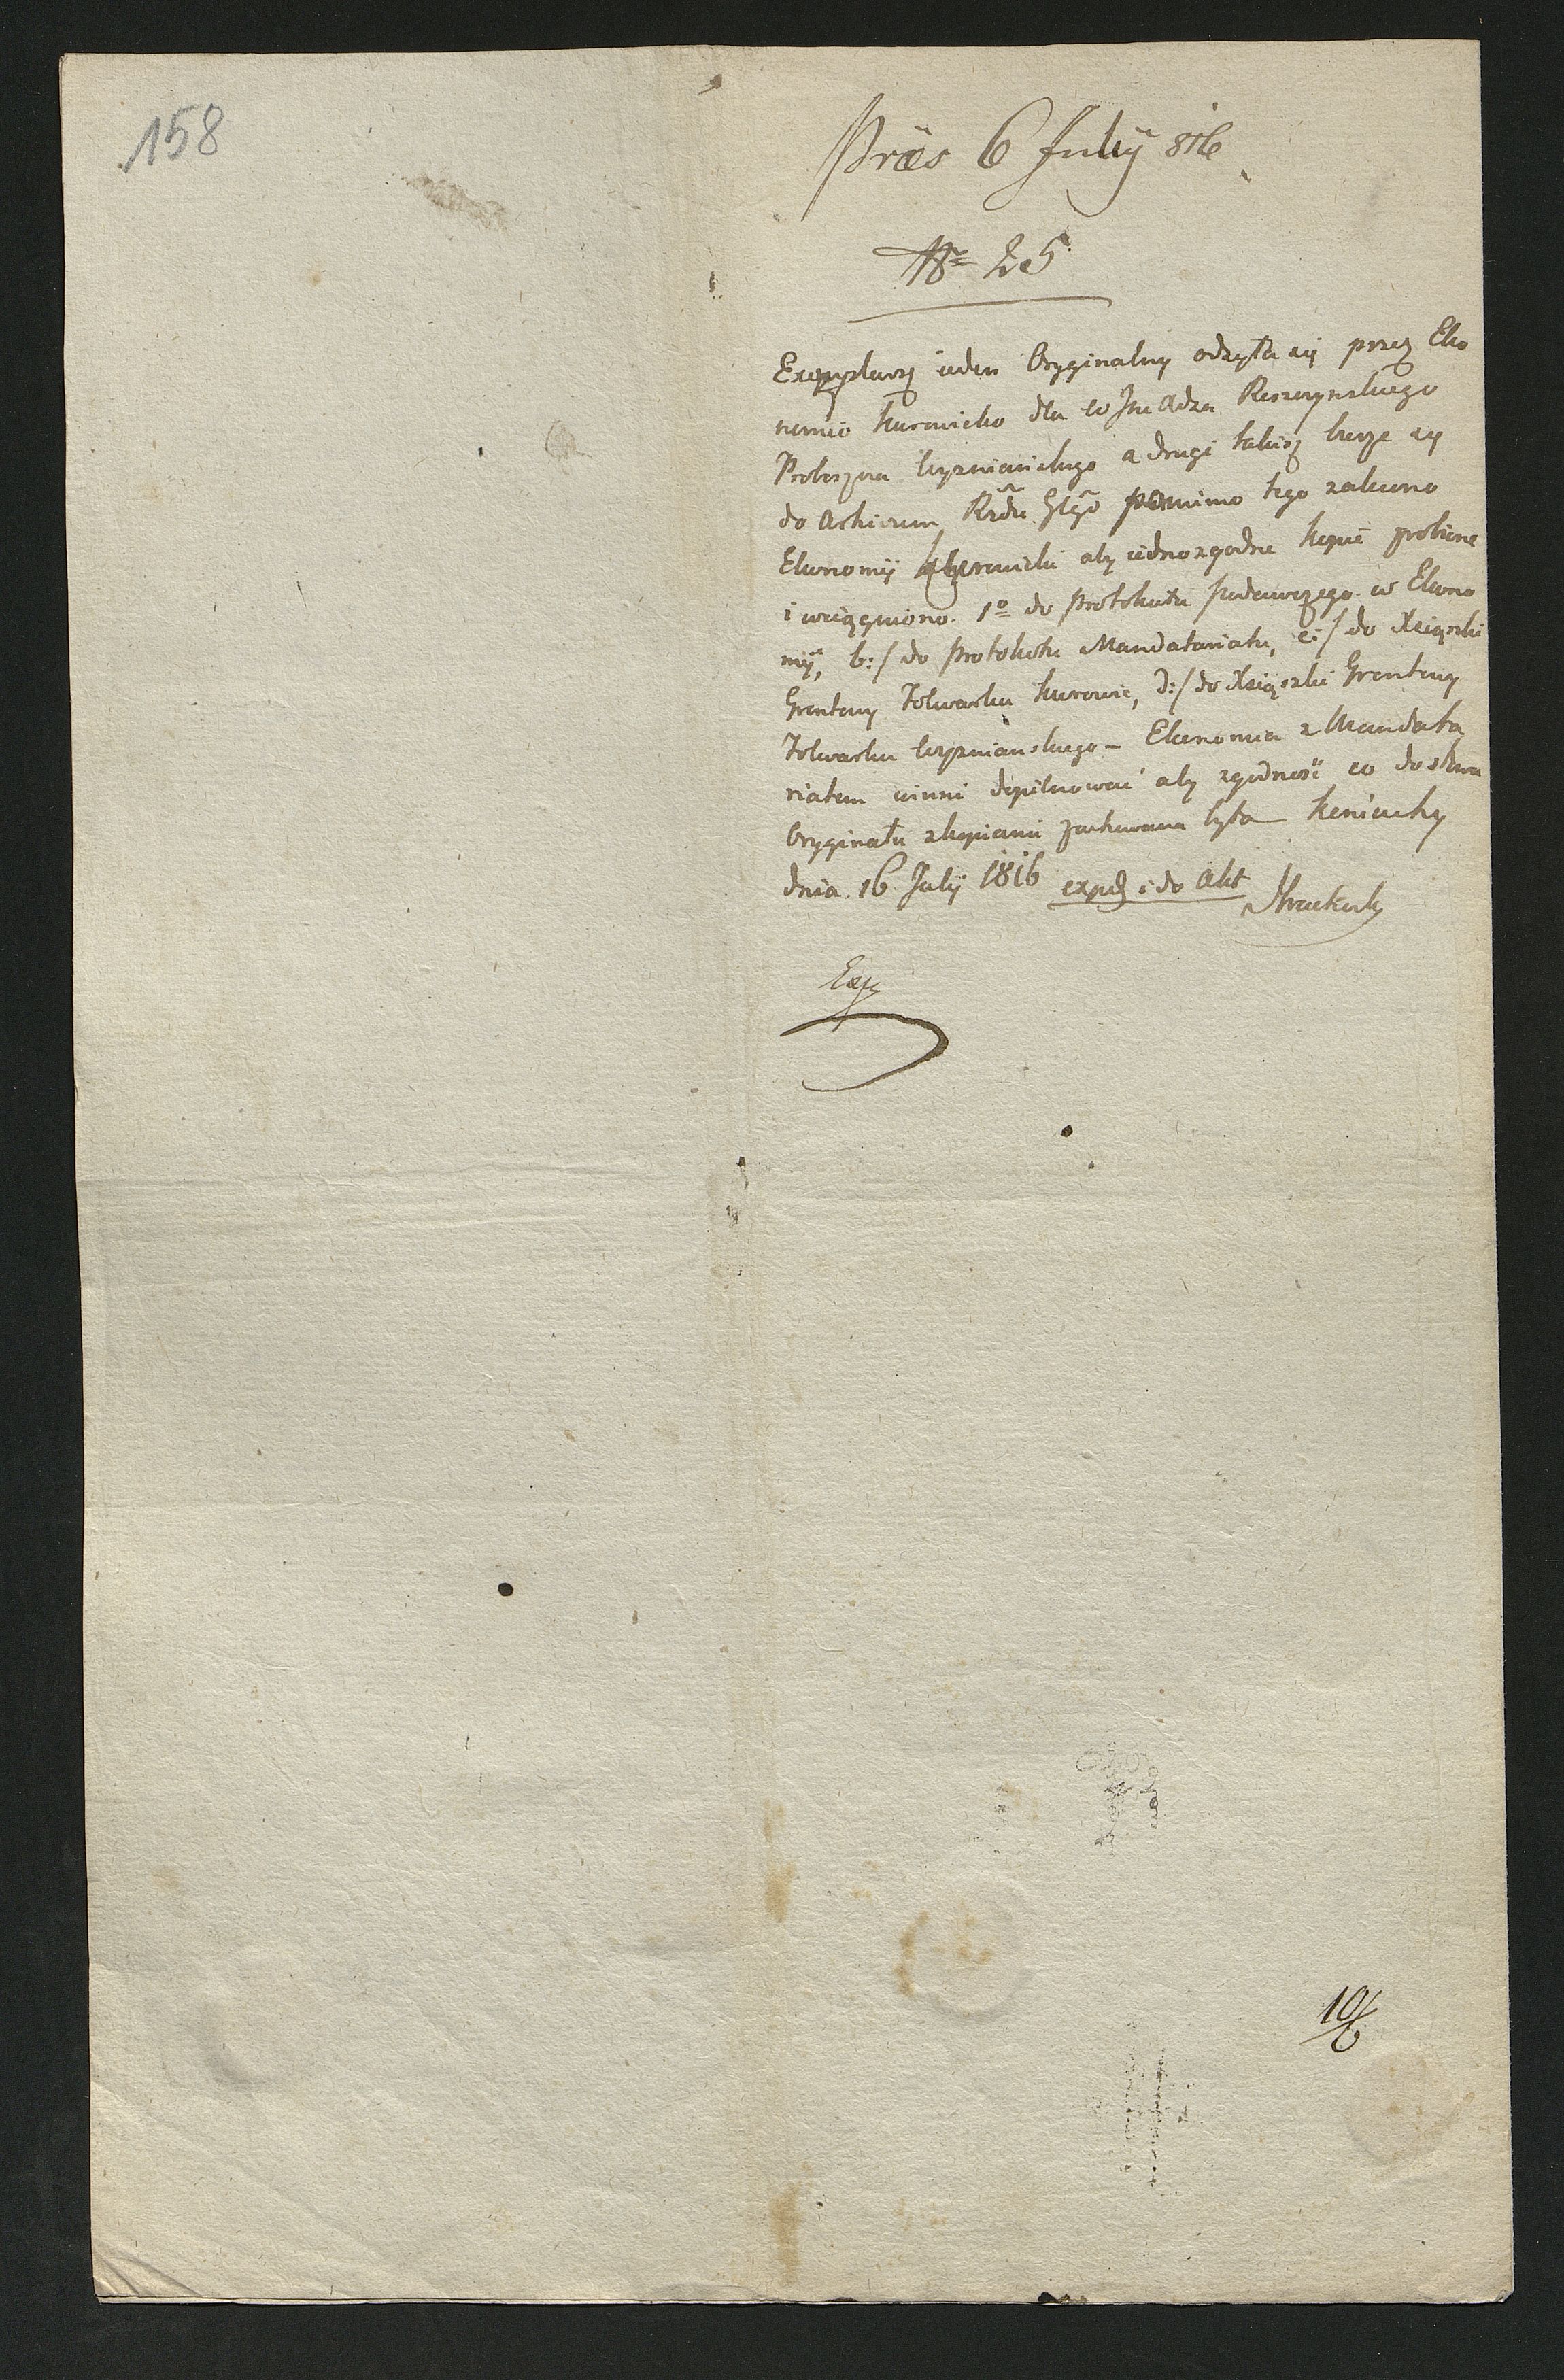 158
Präs 6 July 816
Nr 25
Exemplarz ieden Oryginalny odsyła się przez Eko
nomię Kurowicko dla Reszczynskiego
Proboszcza Wyznianskiego a drugi takisz bierze się
do Archivum pomimo tego zalecono
Ekonomij Kurowicki aby iednozgodne kopie zrobione
i wciągniono. 1o do Protokułu podawczego w Ekono
mij, b:/ do Protokułu Mandatariatu, c:/ do Xsiązki
Grontowy Folwarku Kurowic, d:/ do Xsiązki Grontowy
Folwarku Wyznianskiego – Ekonomia z Mandata
riatem winni dopilnować aby zgodność co do słowa
Oryginału z kopiami zachowana była
dnia 16 July 1816 exp: i do Akt
Exp
10/6